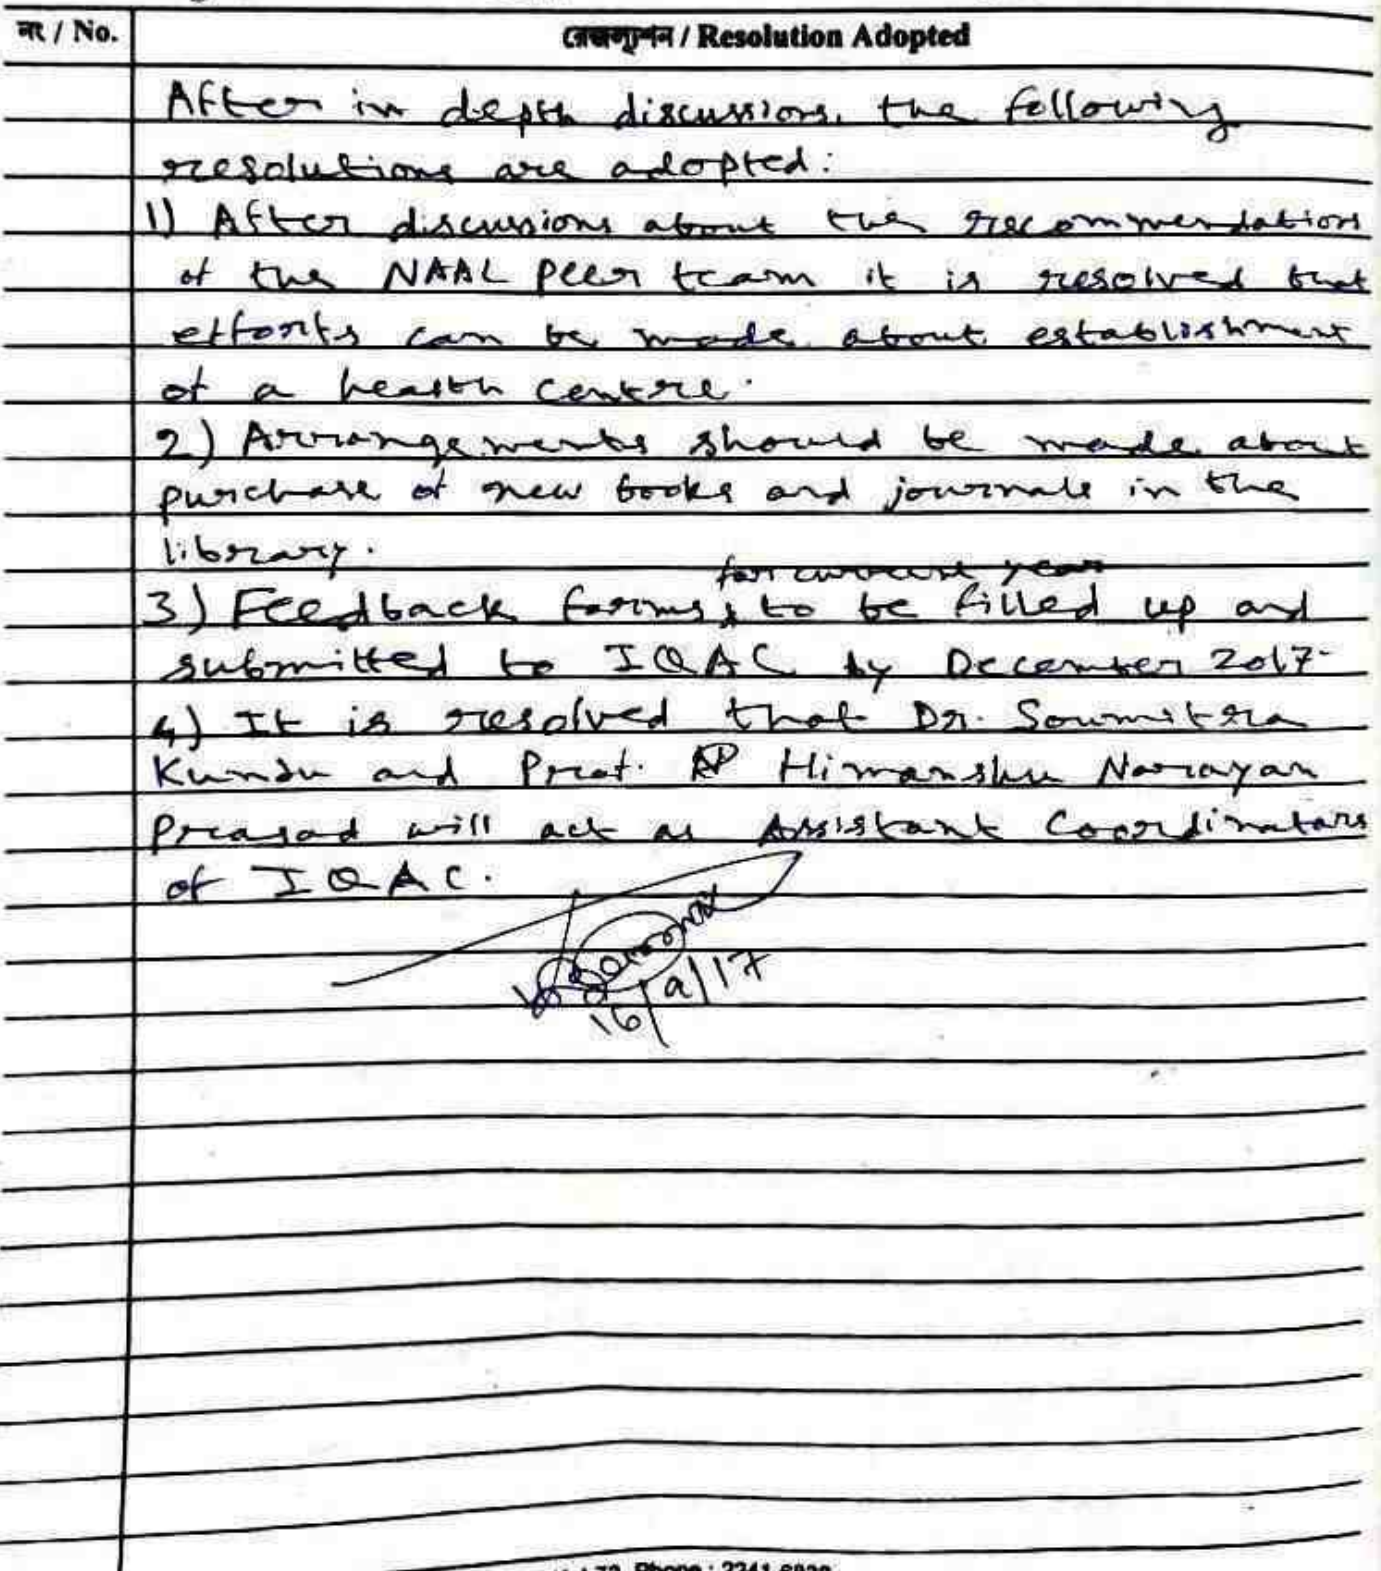 নং / No.
রেজল্যুশন / Resolution Adopted
After in depth discussions, the following
resolutions are adopted:
1) After discussions about the recommendations
of the NAAC peer team it is resolved that
efforts can be made about establishment
of a health centre.
2) Arrangements should be made about
purchase of new books and journals in the
library.
for current year
3) Feedback forms, to be filled up and
submitted to IQAC by December 2017.
4) It is resolved that Dr. Soumitra
Kundu and Prof. Himanshu Narayan
Prasad will act as Assistant Coordinators
of IQAC.
16/9/17
73, Phone : 2241-6929